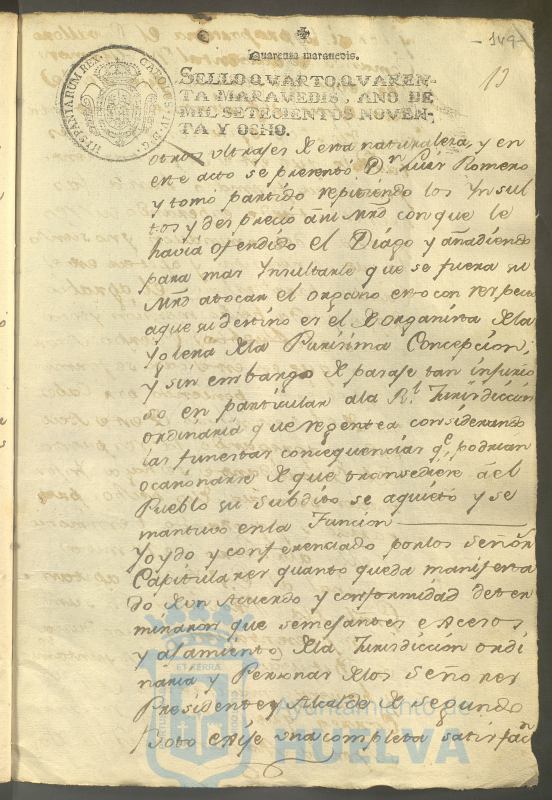 -149-
13
Quarenta maravedis.
SELLO QVARTO, QVAREN-
TA MARAVEDIS, AÑO DE
MIL SETECIENTOS NOVEN-
TA Y OCHO.
HISPANIARUM REX CAROLUS IV D. G.
otros ultrajes de esta naturaleza, y en
este acto se presentó Dn Luis Romero
y tomó partido repitiendo los Ynsul
tos y desprecio á mi Mrd con que le
havia ofendido el Diágo y añadiendo
para mas Ynsultarle que se fuera su
Mrd atocar el organo esto con respecto
aque su destino es el de organista de la
Yglesia de la Purisima Concepcion;
Y sin embargo de paraje tan injurio
so en particular ala Rl Jurisdiccion
ordinaria que regentea considerando
las funestas consequencias qe podrian
ocasionarse de que transcediere á el
Pueblo su subdito se aquietó y se
mantuvo enla Funcion
Yoydo y conferenciado porlos Señors
Capitulares quanto queda manifesta
do de un Acuerdo y conformidad deter
minaron que semejantes excesos
y ajamiento de la Jurisdiccion ordi
naria y Personas de los Señores
Presidente y Alcalde de segundo
Voto exije una completa satisfacn
Ayuntamiento de
HUELVA